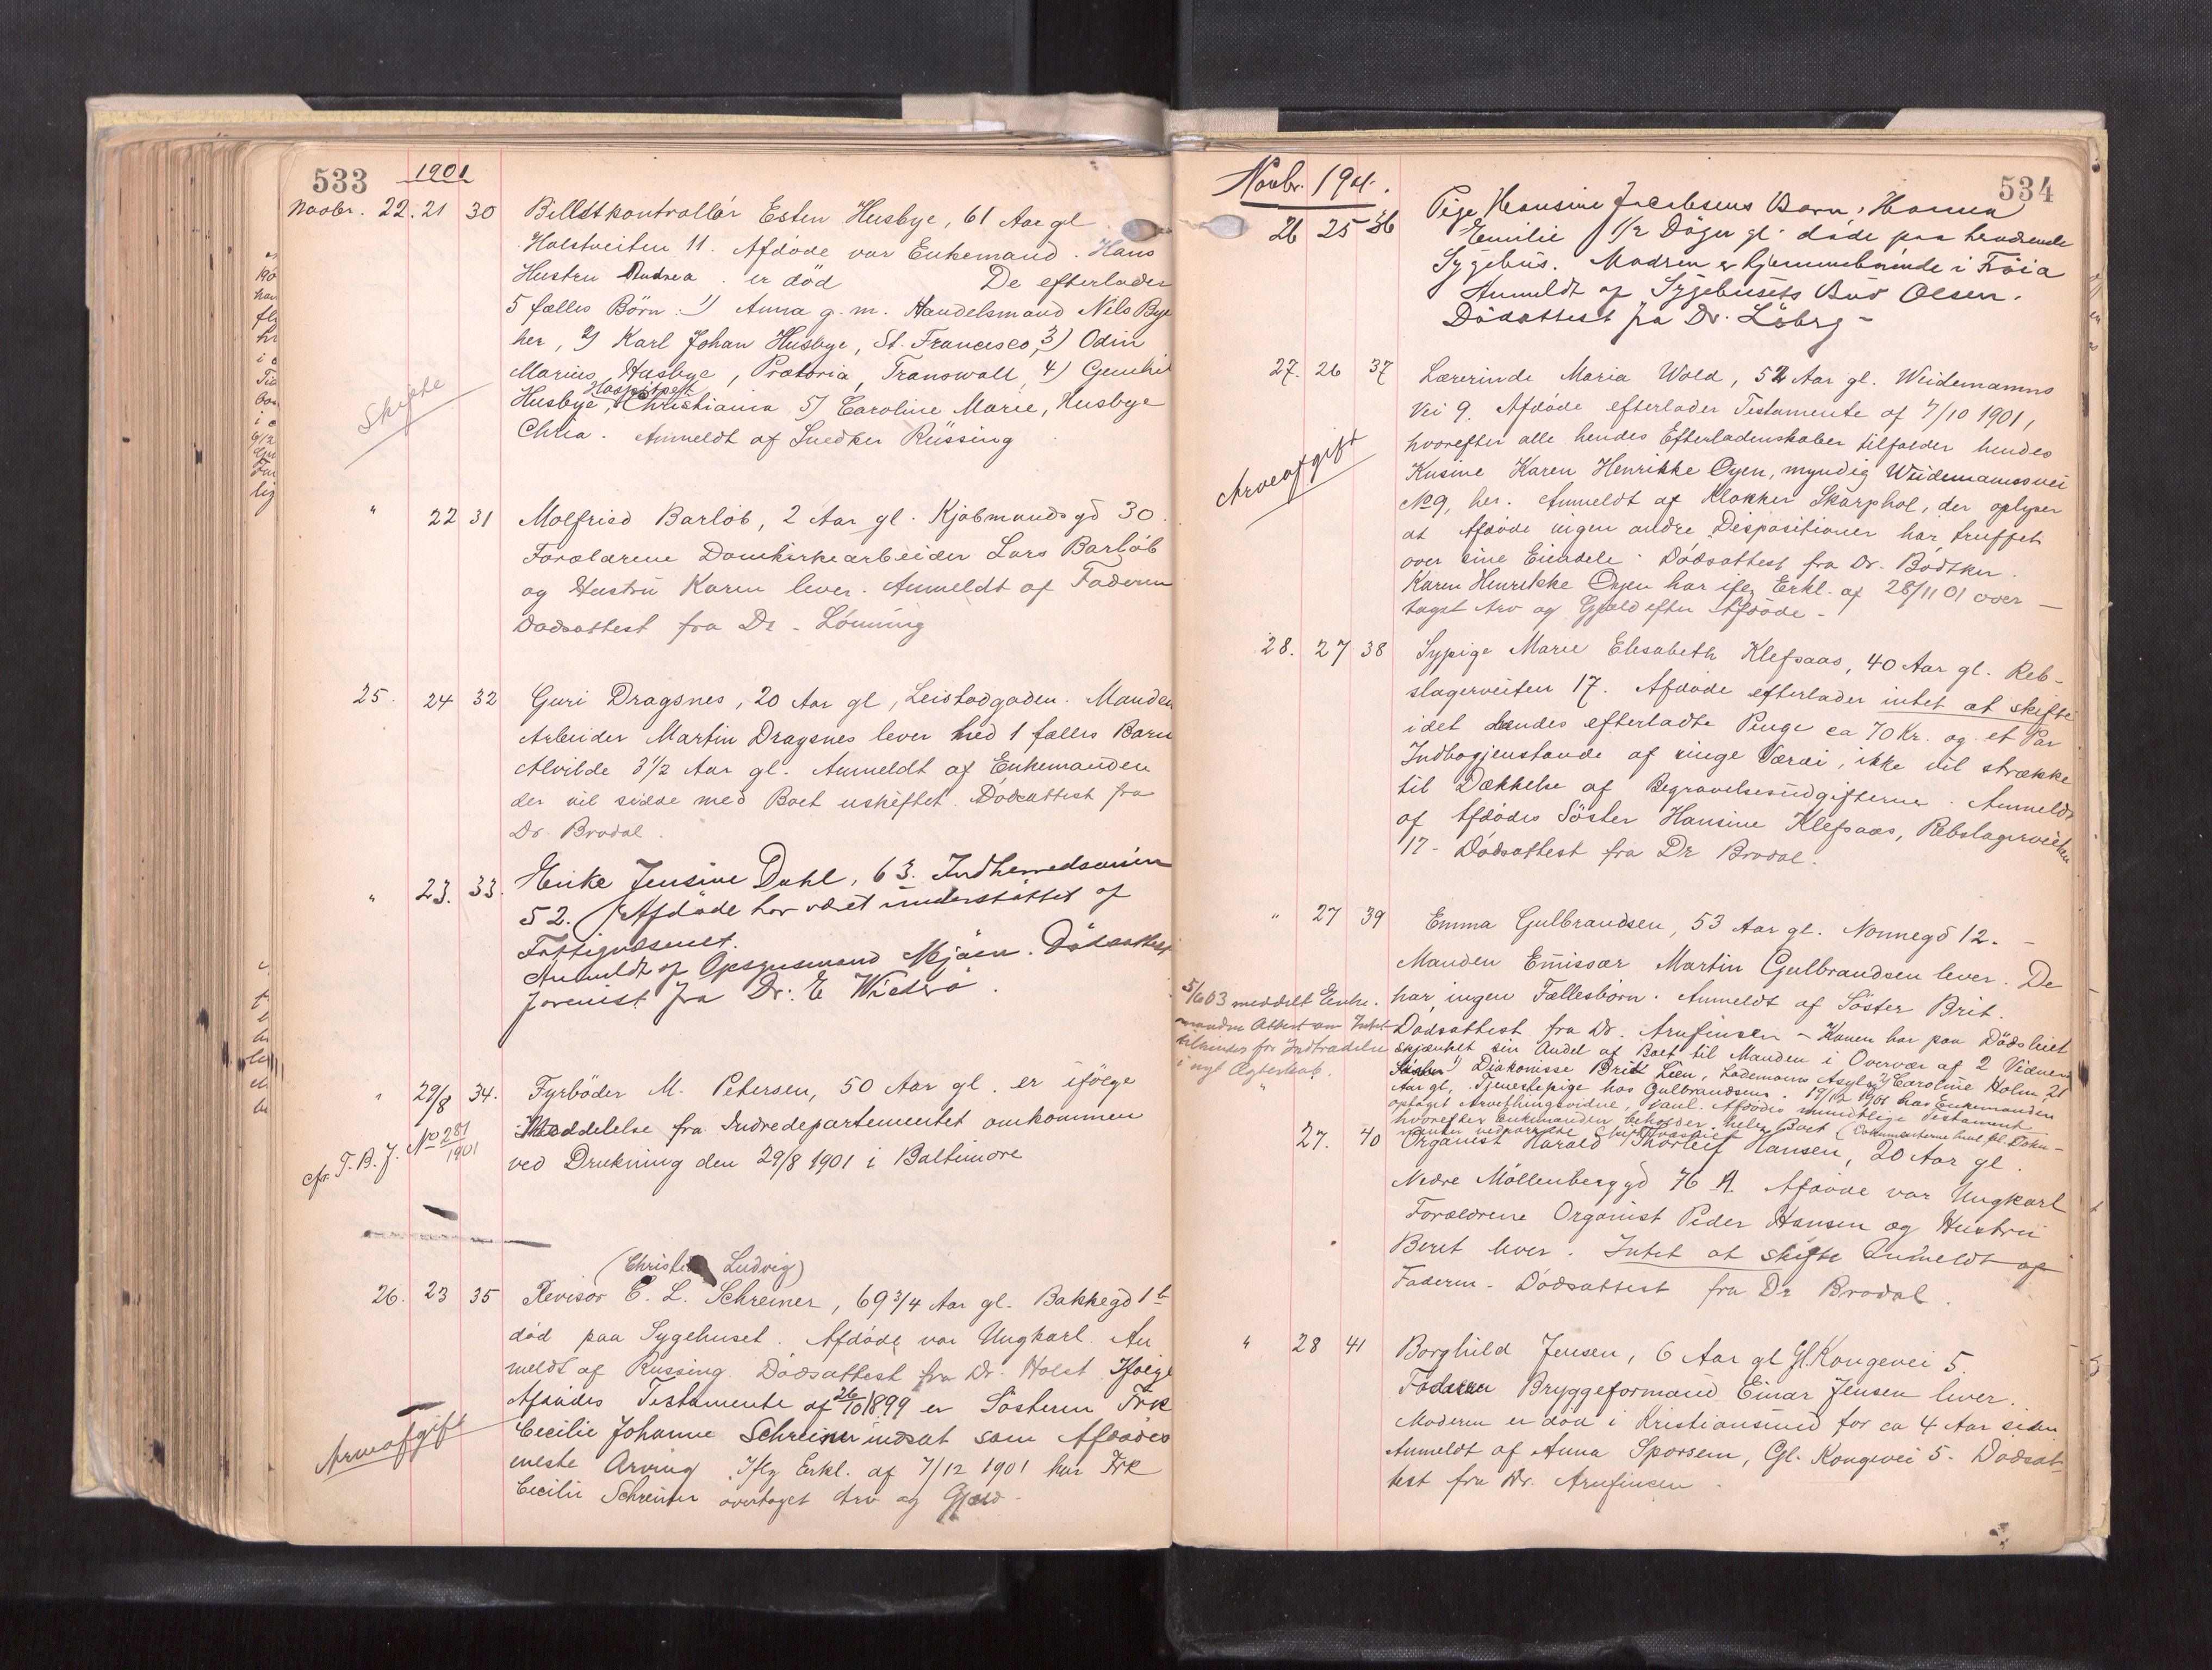 533 1901
Novbr. 22. 21 30 Billetkontrollör Esten Husbye, 61 Aar gl
Holstveiten 11. Afdöde var Enkemand. Hans
Hustru Andrea er död De efterlader
5 fælles Börn: 1) Anna g. m. Handelsmand Nils Bye
her, 2) Karl Johan Husbye, St. Francisco, 3) Odin
Marius Husbye, Prætoria, Transwall, 4)
Husbye, Christiania 5) Caroline Marie, Husbye
Skifte
Chria. Anmeldt af Snedker Rüssing
" 22 31 Molfrid Barlöb, 2 Aar gl. Kjöbmandsgd 30.
Forældrene Domkirkearbeider Lars Barlöb
og Hustru Karen lever. Anmeldt af Faderen
Dödsattest fra Dr. Lönning
25. 24 32 Guri Dragsnes, 20 Aar gl, Leistadgaden. Manden
Arbeider Martin Dragsnes lever med 1 fælles Barn
Alvilde 3 1/2 Aar gl. Anmeldt af Enkemanden
der vil sidde med Boet uskiftet. Dödsattest fra
Dr. Brodal.
" 23. 33. Enke Jensine Dahl, 63. Indherredsveien
52. Afdöde har været understöttet af
Fattigvæsenet.
Anmeldt af Opsynsmand Mjöen. Dödsattest
forevist fra Dr. E
" 29/8 34. Fyrböder M. Petersen, 50 Aar gl. er ifölge
Meddelelse fra Indredepartementet omkommen
cfr. T. B. J. No 281/1901 ved Drukning den 29/8 1901 i Baltimore
(Christian Ludvig)
26. 23 35 Revisor C. L. Schreiner, 69 3/4 Aar gl. Bakkegd 1 b
död paa Sygehuset. Afdöde var Ungkarl. An
meldt af Rüssing. Dödsattest fra Dr. Holst. Ifölge
Afdödes Testamente af 26/10 1899 er Sösteren Frk
Arveafgift
Cecilie Johanne Schreiner indsat som Afdödes
eneste Arving. Iflg Erkl. af 7/12 1901 har Frk
Cecilie Schreiner overtaget Arv og Gjæld.
Novbr. 1901. 534
26 25 36 Pige Hansine Jacobsens Barn, Hanna
Emilie 1/2 Dögn gl. döde paa herværende
Sygehus. Modren er hjemmehörende i Fröia
Anmeldt af Sygehusets Bud Olsen.
Dödsattest fra Dr. Löberg -
27. 26 37 Lærerinde Maria Wold, 52 Aar gl. Weidemanns
Vei 9. Afdöde efterlader Testamente af 7/10 1901,
hvorefter alle hendes Efterladenskaber tilfalder hendes
Arveafgift
Kusine Karen Henrikke Öyen, myndig Weidemannsvei
No 9, her. Anmeldt af Klokker Skarphol, der oplyser
at Afdöde ingen andre Dispositioner har truffet
over sine Eiendele. Dödsattest fra Dr. Bödtker.
Karen Henrikke Öyen har iflg Erkl. af 28/11 01 over -
taget Arv og Gjæld efter Afdöde -
28. 27 38 Sypige Marie Elisabeth Klefsaas, 40 Aar gl. Reb-
slagerveiten 17. Afdöde efterlader intet at skifte
idet hendes efterladte Penge ca 70 Kr. og et Par
Indbogjenstande af ringe Værdi, ikke vil strække
til Dækkelse af Begravelsesudgifterne. Anmeldt
af Afdödes Söster Hansine Klefsaas, Rebslagerveiten
17 - Dödsattest fra Dr Brodal.
" 27 39 Emma Gulbrandsen, 53 Aar gl. Nonnegd 12. -
Manden Emissær Martin Gulbrandsen lever. De
har ingen Fællesbörn. Anmeldt af Söster Brit.
5/6 03 meddelt Enke-
manden Attest om Intet
tilhinder for Indtrædelse
i nyt Ægteskab.
Dödsattest fra Dr. Arnfinsen - Konen har paa Dödsleiet
skjænket sin Andel af Boet til Manden i Overvær af 2 Vidner
1) Diakonisse Brit Lien, Lademoens Asyl og 2) Caroline Holm, 21
Aar gl, Tjenestepige hos Gulbrandsens. 19/12 1901 har Enkemanden
optaget anl. Afdödes mundtlige Testament
hvorefter Enkemanden beholder hele Boet (Dokumenterne
27. 40 Organist Harald Thorleif Hansen, 20 Aar gl.
Nedre Möllenberggd 76 A. Afdöde var Ungkarl
Forældrene Organist Peder Hansen og Hustru
Beret lever. Intet at skifte Anmeldt af
Faderen - Dödsattest fra Dr Brodal.
" 28 41 Borghild Jensen, 6 Aar gl Gl. Kongevei 5.
Faderen Bryggeformand Einar Jensen lever.
Moderen er död i Kristiansund for ca 4 Aar siden
Anmeldt af Anna Sporsem, Gl. Kongevei 5. Dödsat-
test fra Dr. Arnfinsen.